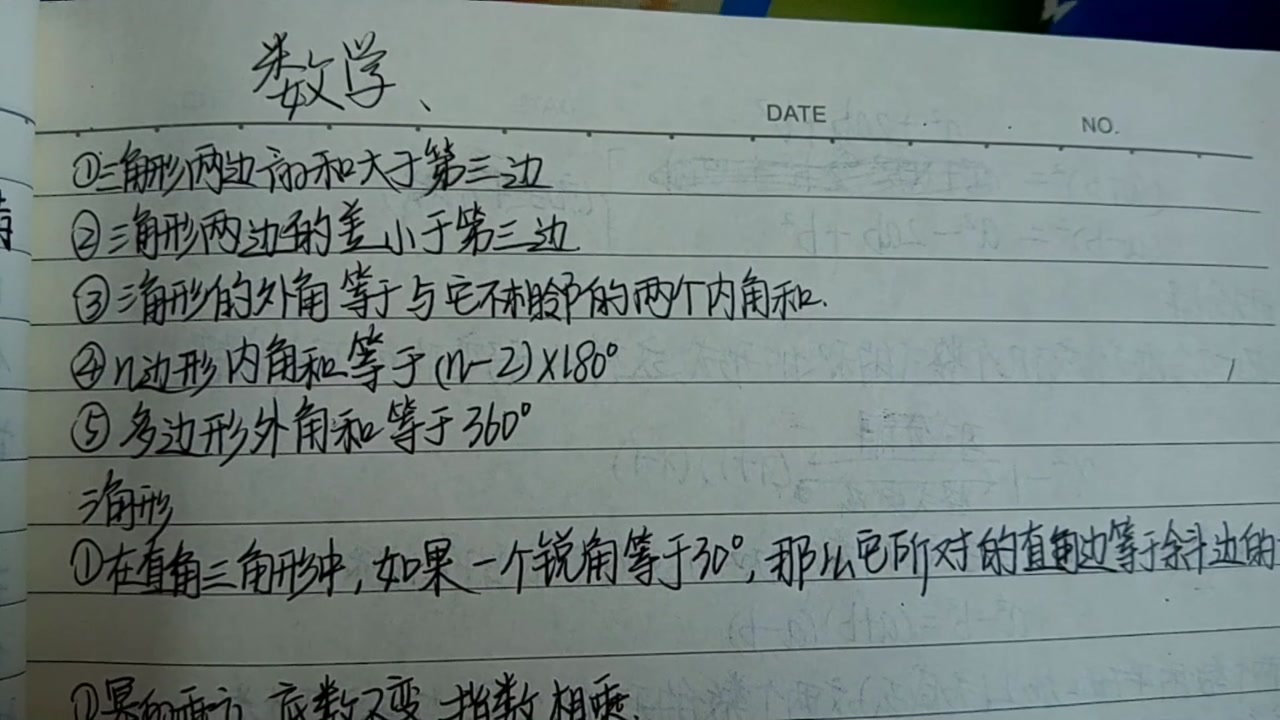 数学、
DATE
NO.
①三角形两边的和大于第三边
②三角形两边的差小于第三边
③三角形的外角等于与它不相邻的两个内角和.
④n边形内角和等于(n-2)×180°
⑤多边形外角和等于360°
三角形
①在直角三角形中,如果一个锐角等于30°,那么它所对的直角边等于斜边的
①幂的乘方 底数不变 指数相乘.